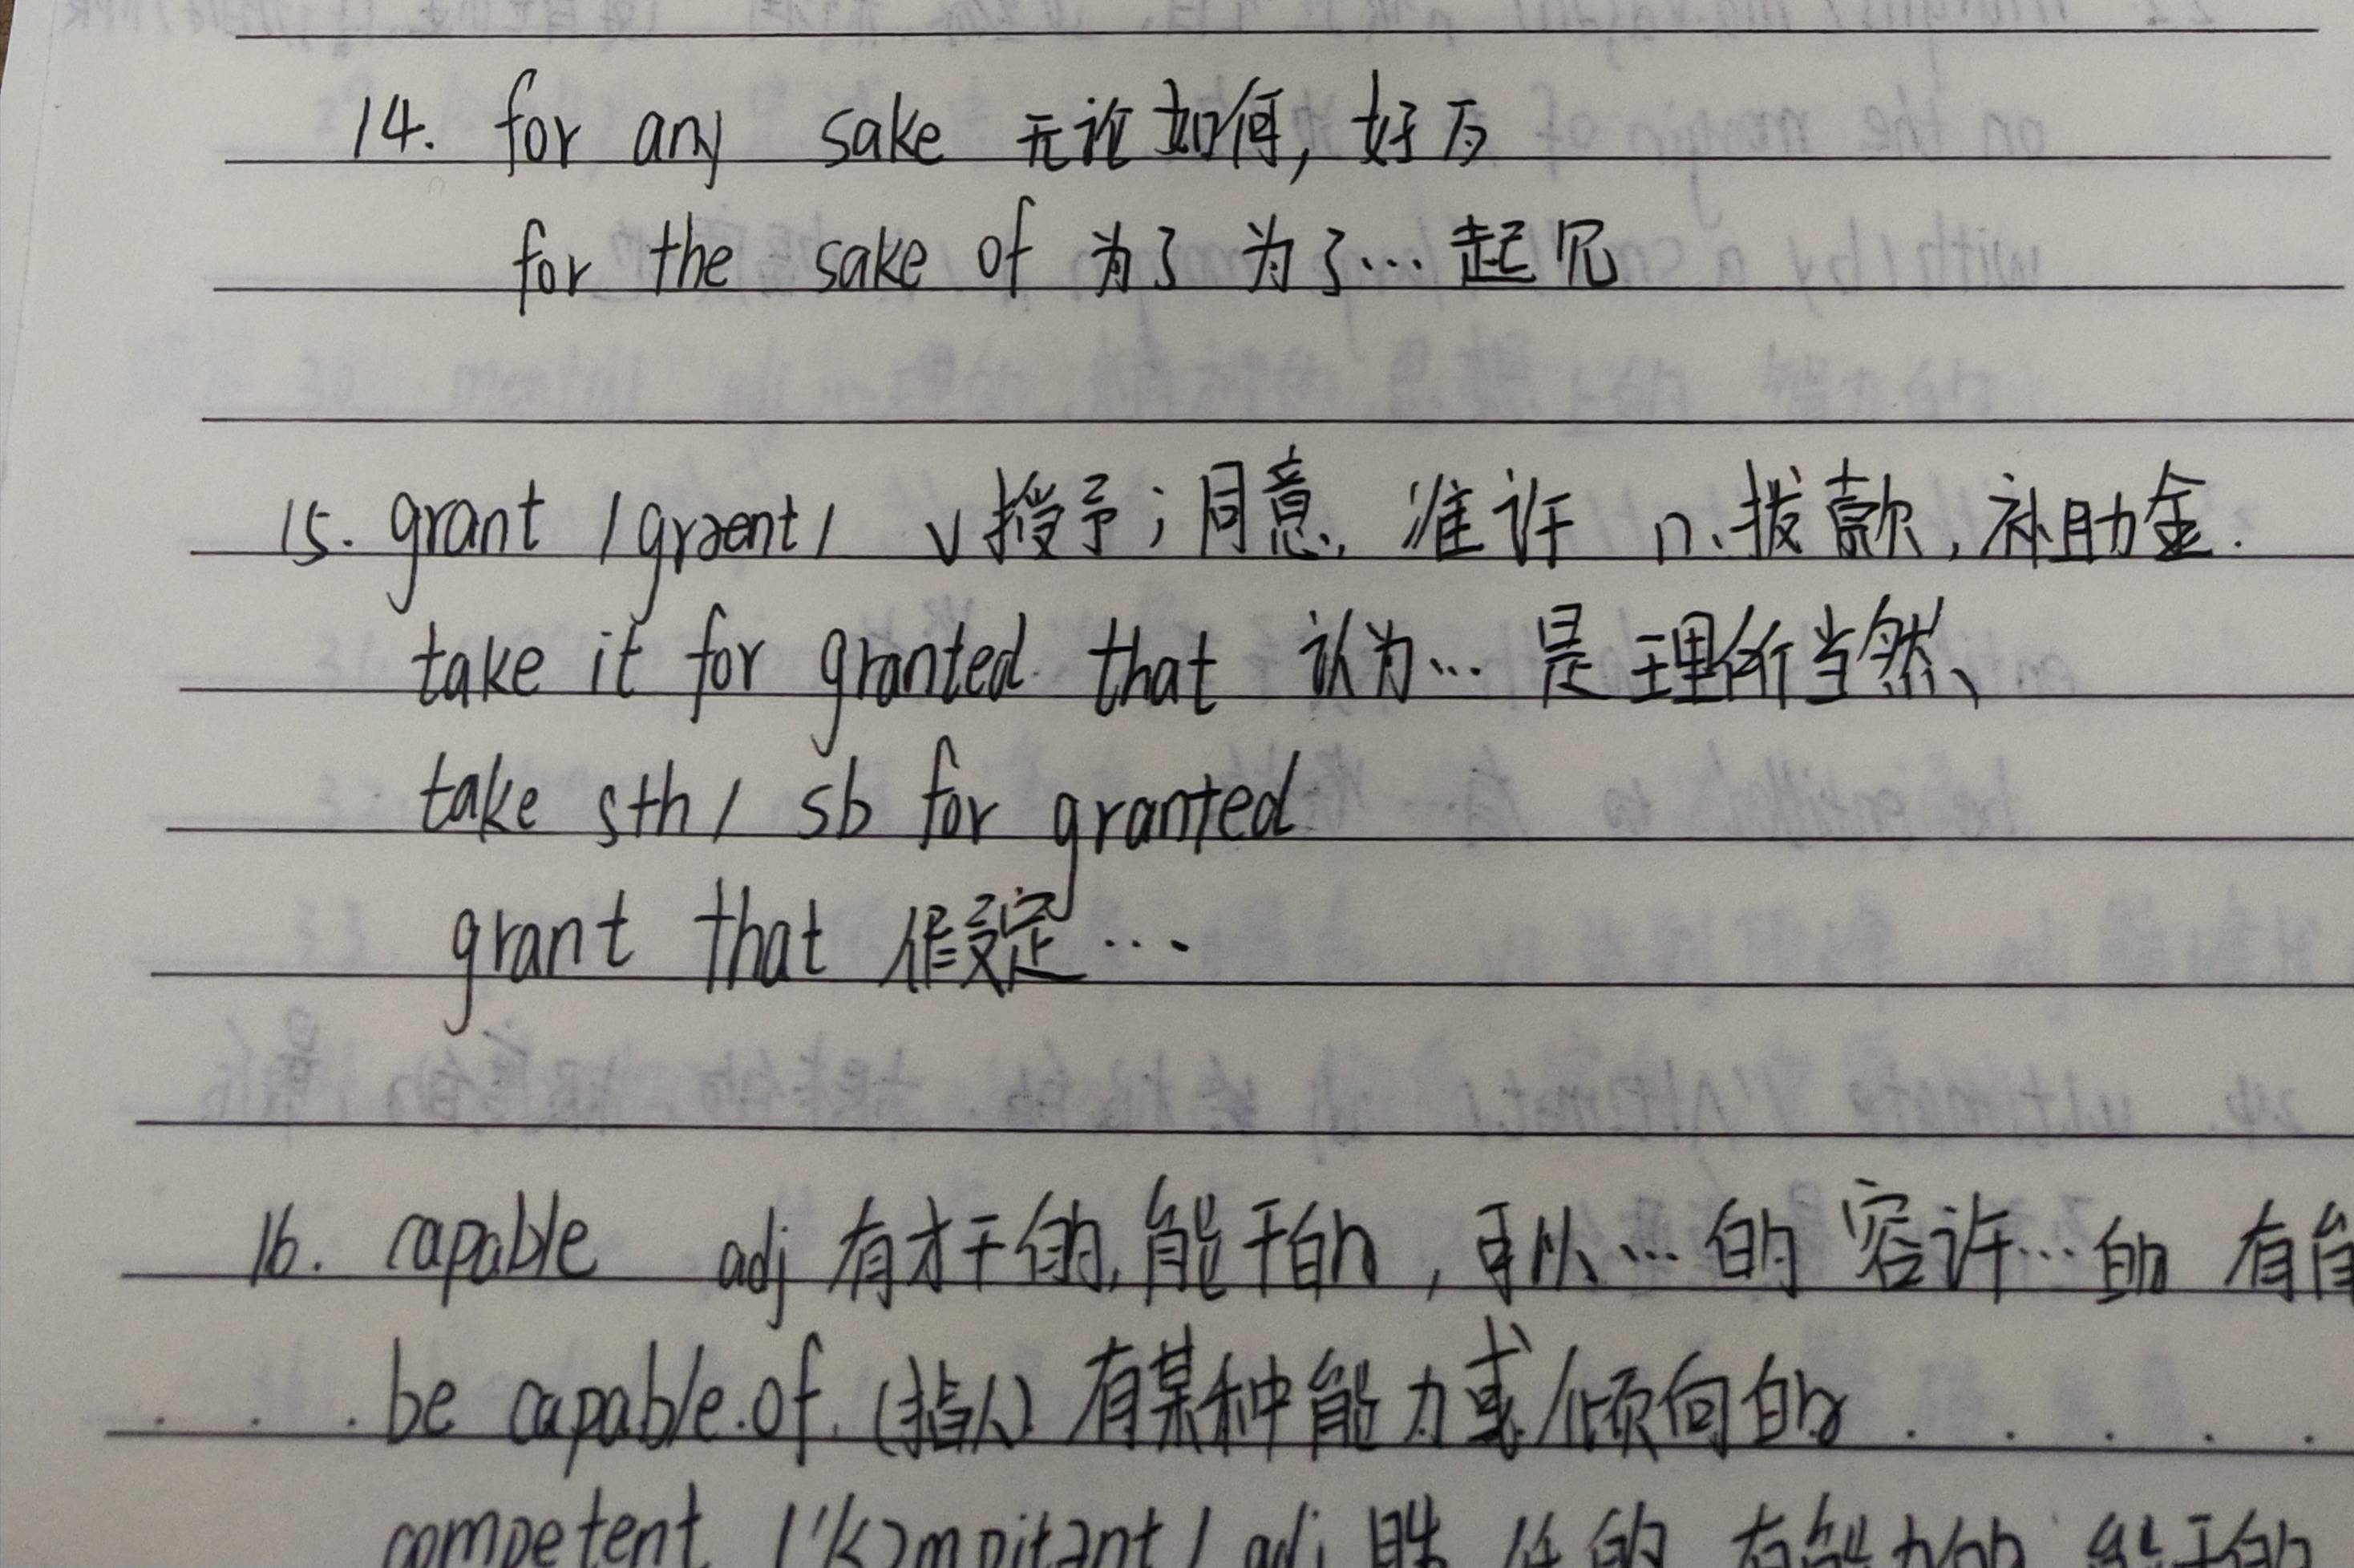 14. for any sake 无论如何, 好歹
for the sake of 为了 为了… 起见
15. grant /grænt/ v 授予; 同意, 准许 n. 拨款, 补助金.
take it for granted that 认为… 是理所当然、
take sth / sb for granted
grant that 假定…
16. capable adj 有才干的, 能干的, 可以…的 容许…的 有
be capable of (指人) 有某种能力或/倾向的
competent /'kɔmpitənt/ adj 胜任的 有能力的 能干的